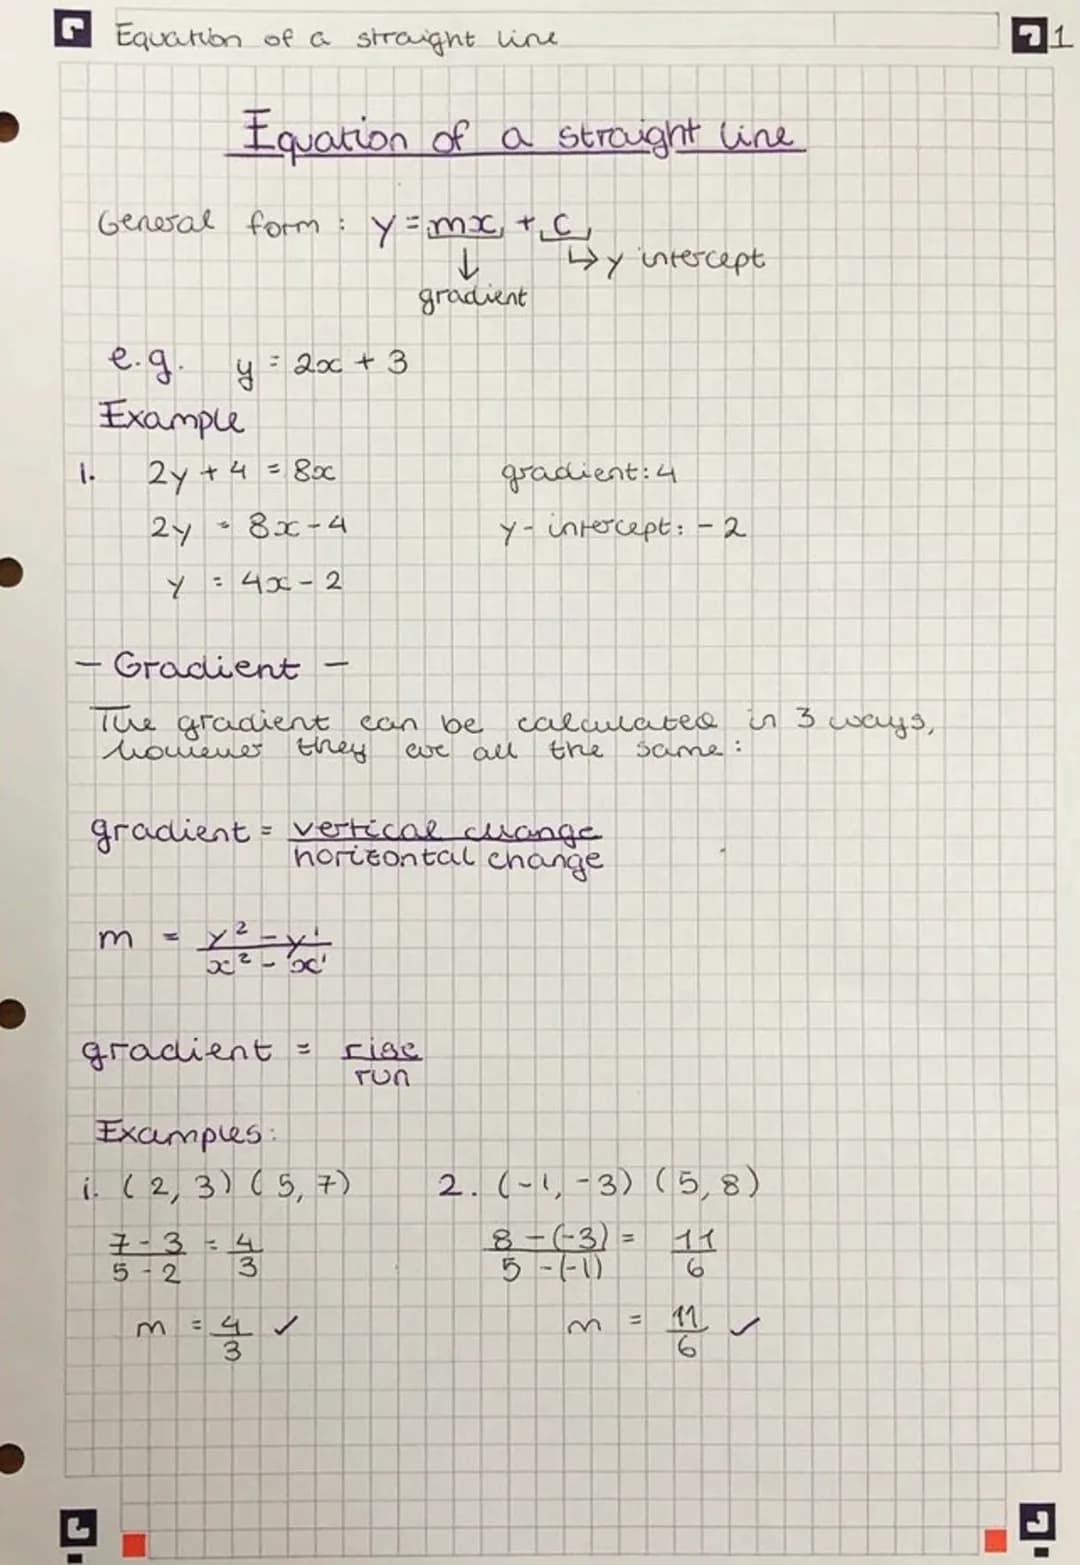 Equation of a straight line
1
Equation of a straight line
General form : y = mx + c
↳ y intercept
↓
gradient
e.g. y = 2x + 3
Example
1. 2y + 4 = 8x gradient: 4
2y = 8x - 4 y-intercept: -2
y = 4x - 2
- Gradient -
The gradient can be calculated in 3 ways,
however they are all the same:
gradient = vertical change
horizontal change
m = y² - y¹
x² - x¹
gradient = rise
run
Examples:
1. (2, 3) (5, 7) 2. (-1, -3) (5, 8)
7 - 3 = 4 8 - (-3) = 11
5 - 2 3 5 - (-1) 6
m = 4 ✓ m = 11 ✓
3 6